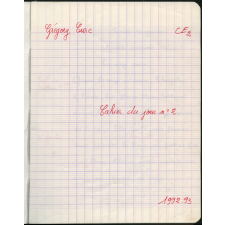 Grégory CE2
Cahier du jour n°2
1992 93